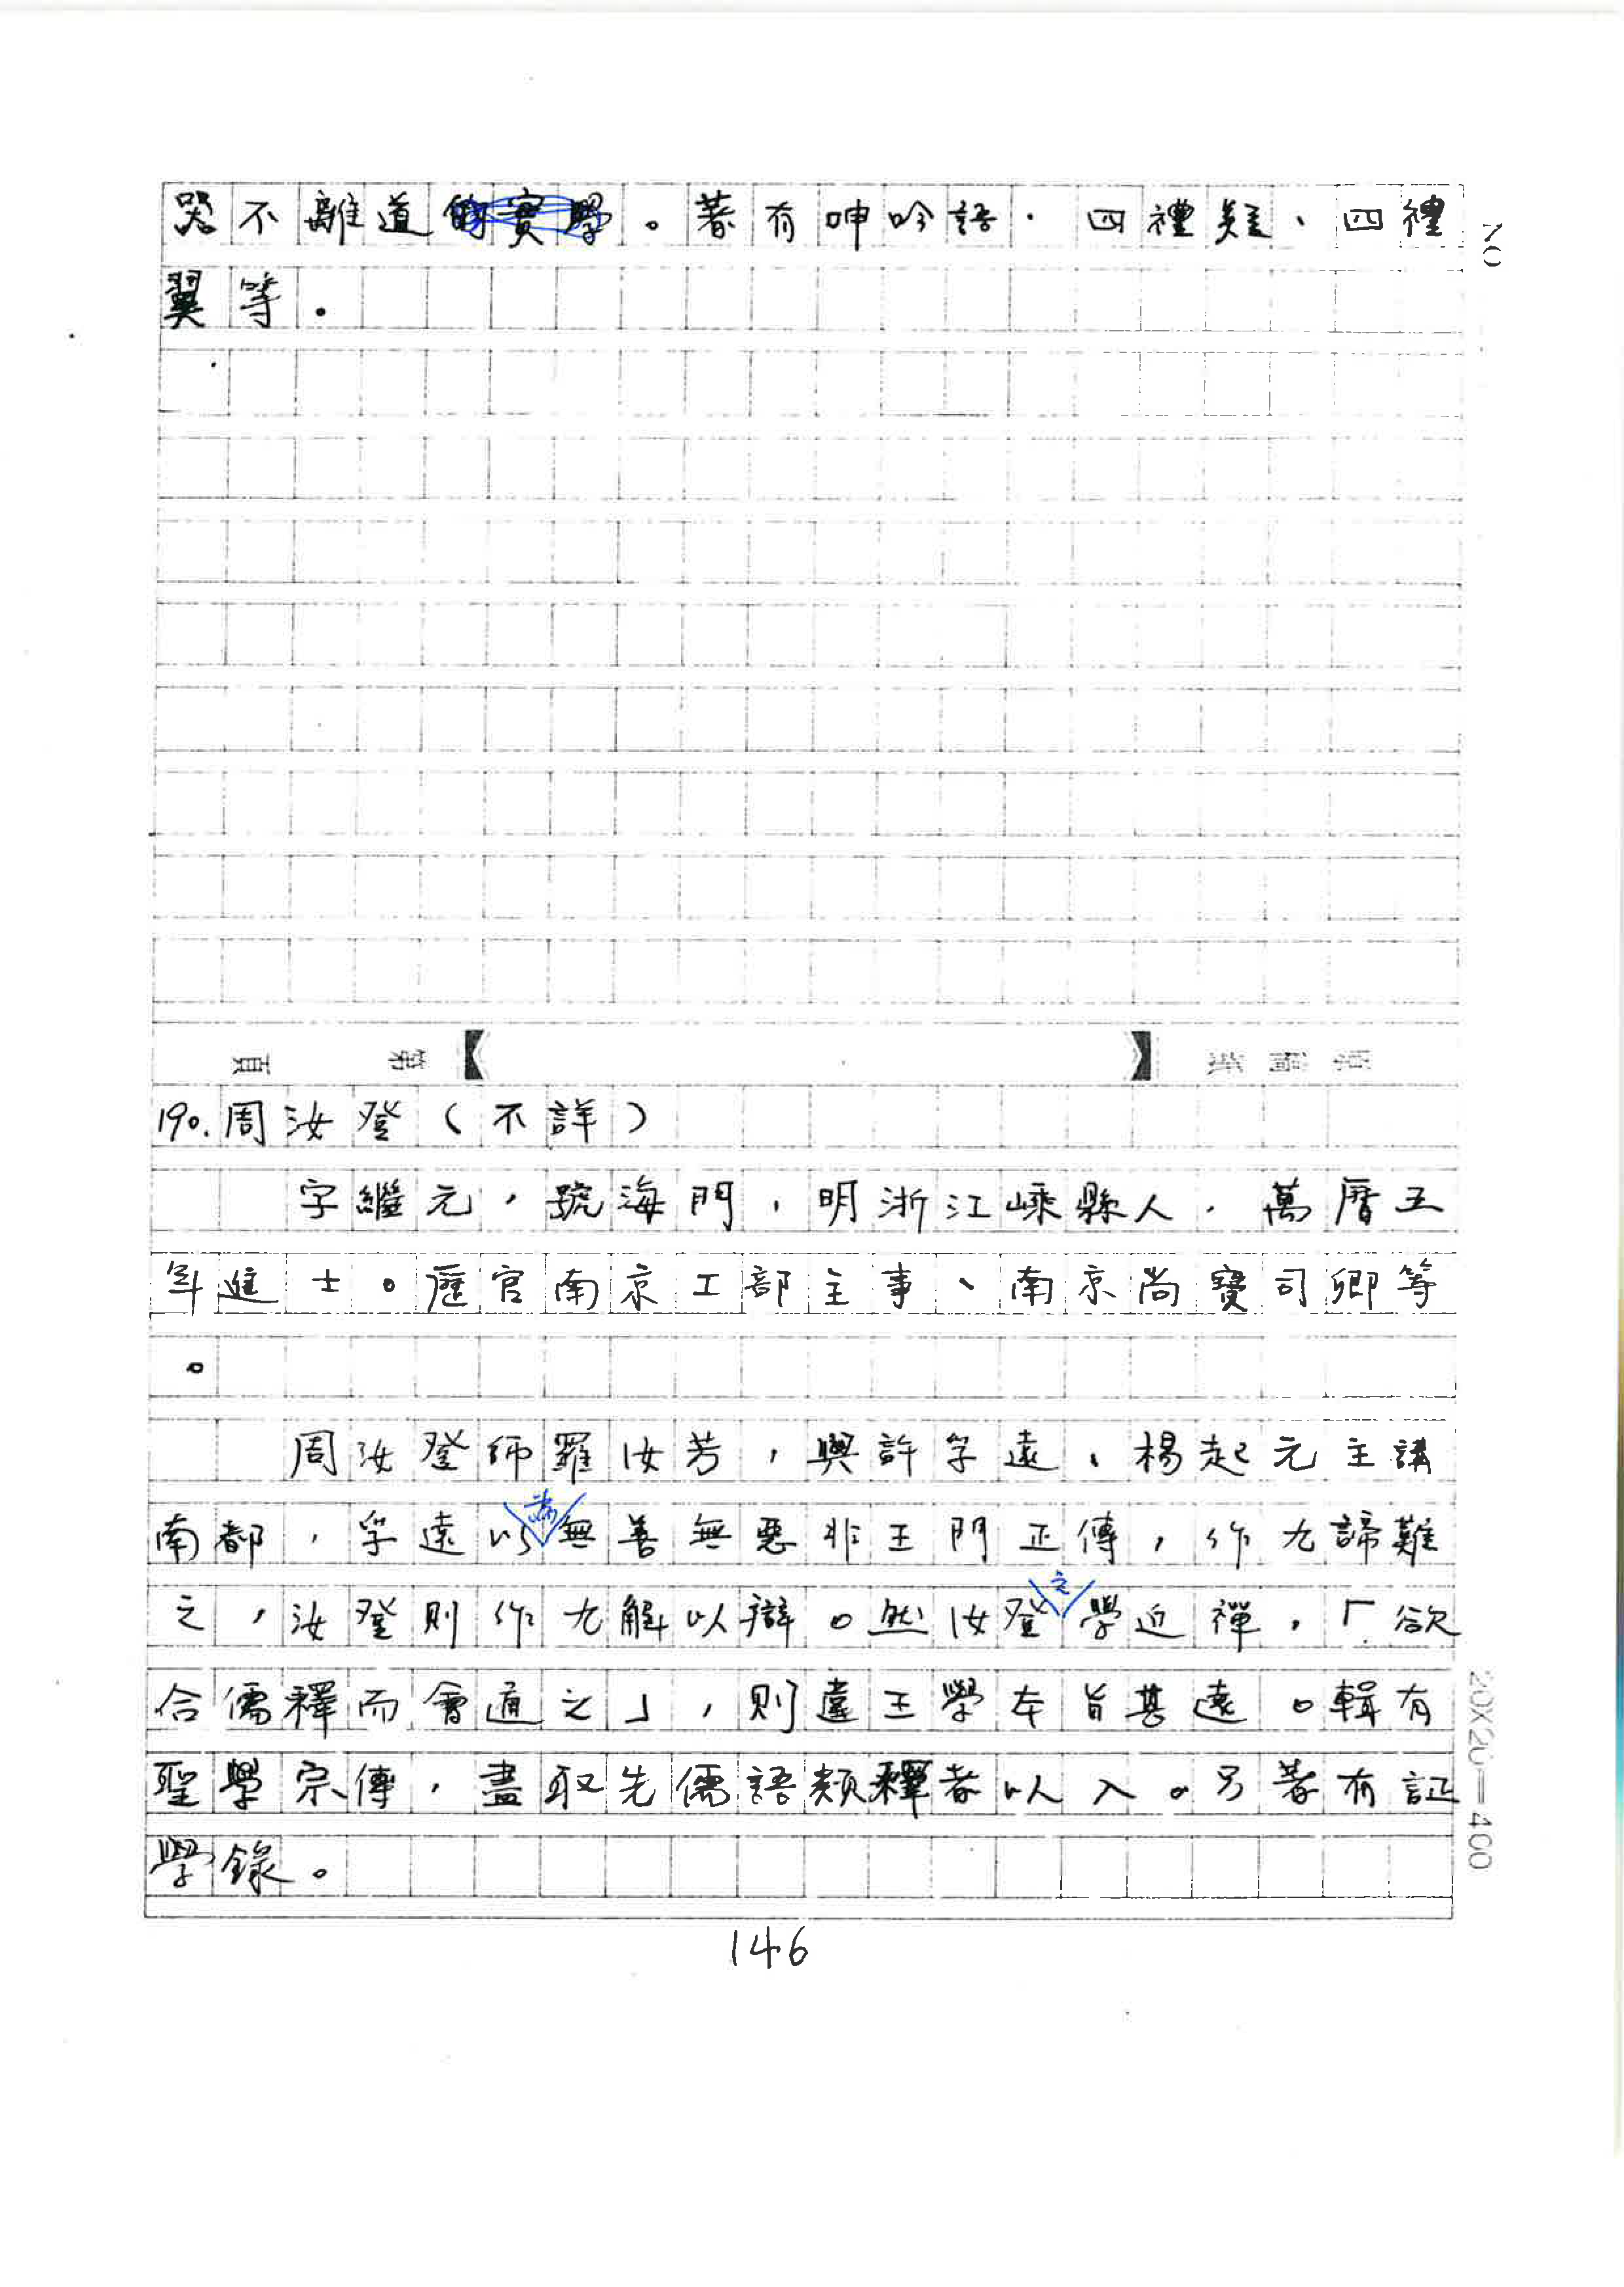 器不離道的實學。著有呻吟語、四禮疑、四禮
翼等。
頁 第
190.周汝登（不詳）
字繼元，號海門，明浙江嵊縣人，萬曆五
年進士。歷官南京工部主事、南京尚寶司卿等
。
周汝登師羅汝芳，與許孚遠、楊起元主講
南都，孚遠以為無善無惡非王門正傳，作九諦難
之，汝登則作九解以辯。然汝登之學近禪，「欲
合儒釋而會通之」，則違王學本旨甚遠。輯有
聖學宗傳，盡取先儒語類釋者以入。另著有証
學錄。
20X20=400
146